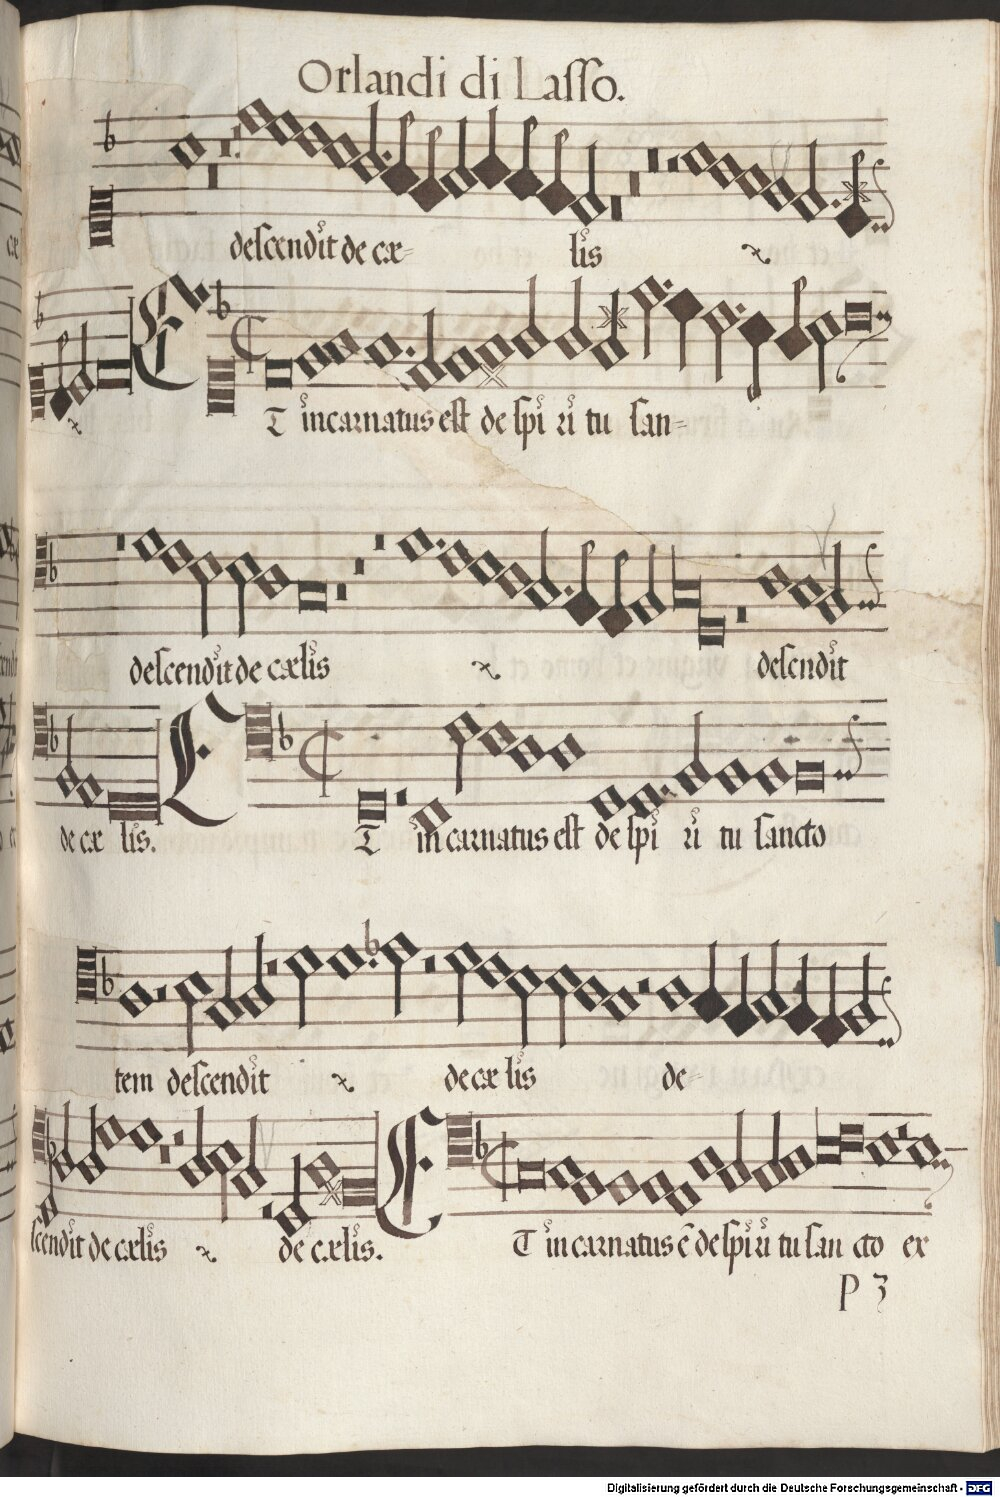 Orlandi di Lasso.
descendit de cæ= lis
T incarnatus est de spi ri tu san=
descendit de cælis descendit
de cæ lis.
T in carnatus est de spi ri tu sancto
tem descendit de cæ lis de=
scendit de cælis de cælis.
T in carnatus ē de spi ri tu san cto ex
P 3
Digitalisierung gefördert durch die Deutsche Forschungsgemeinschaft - DFG